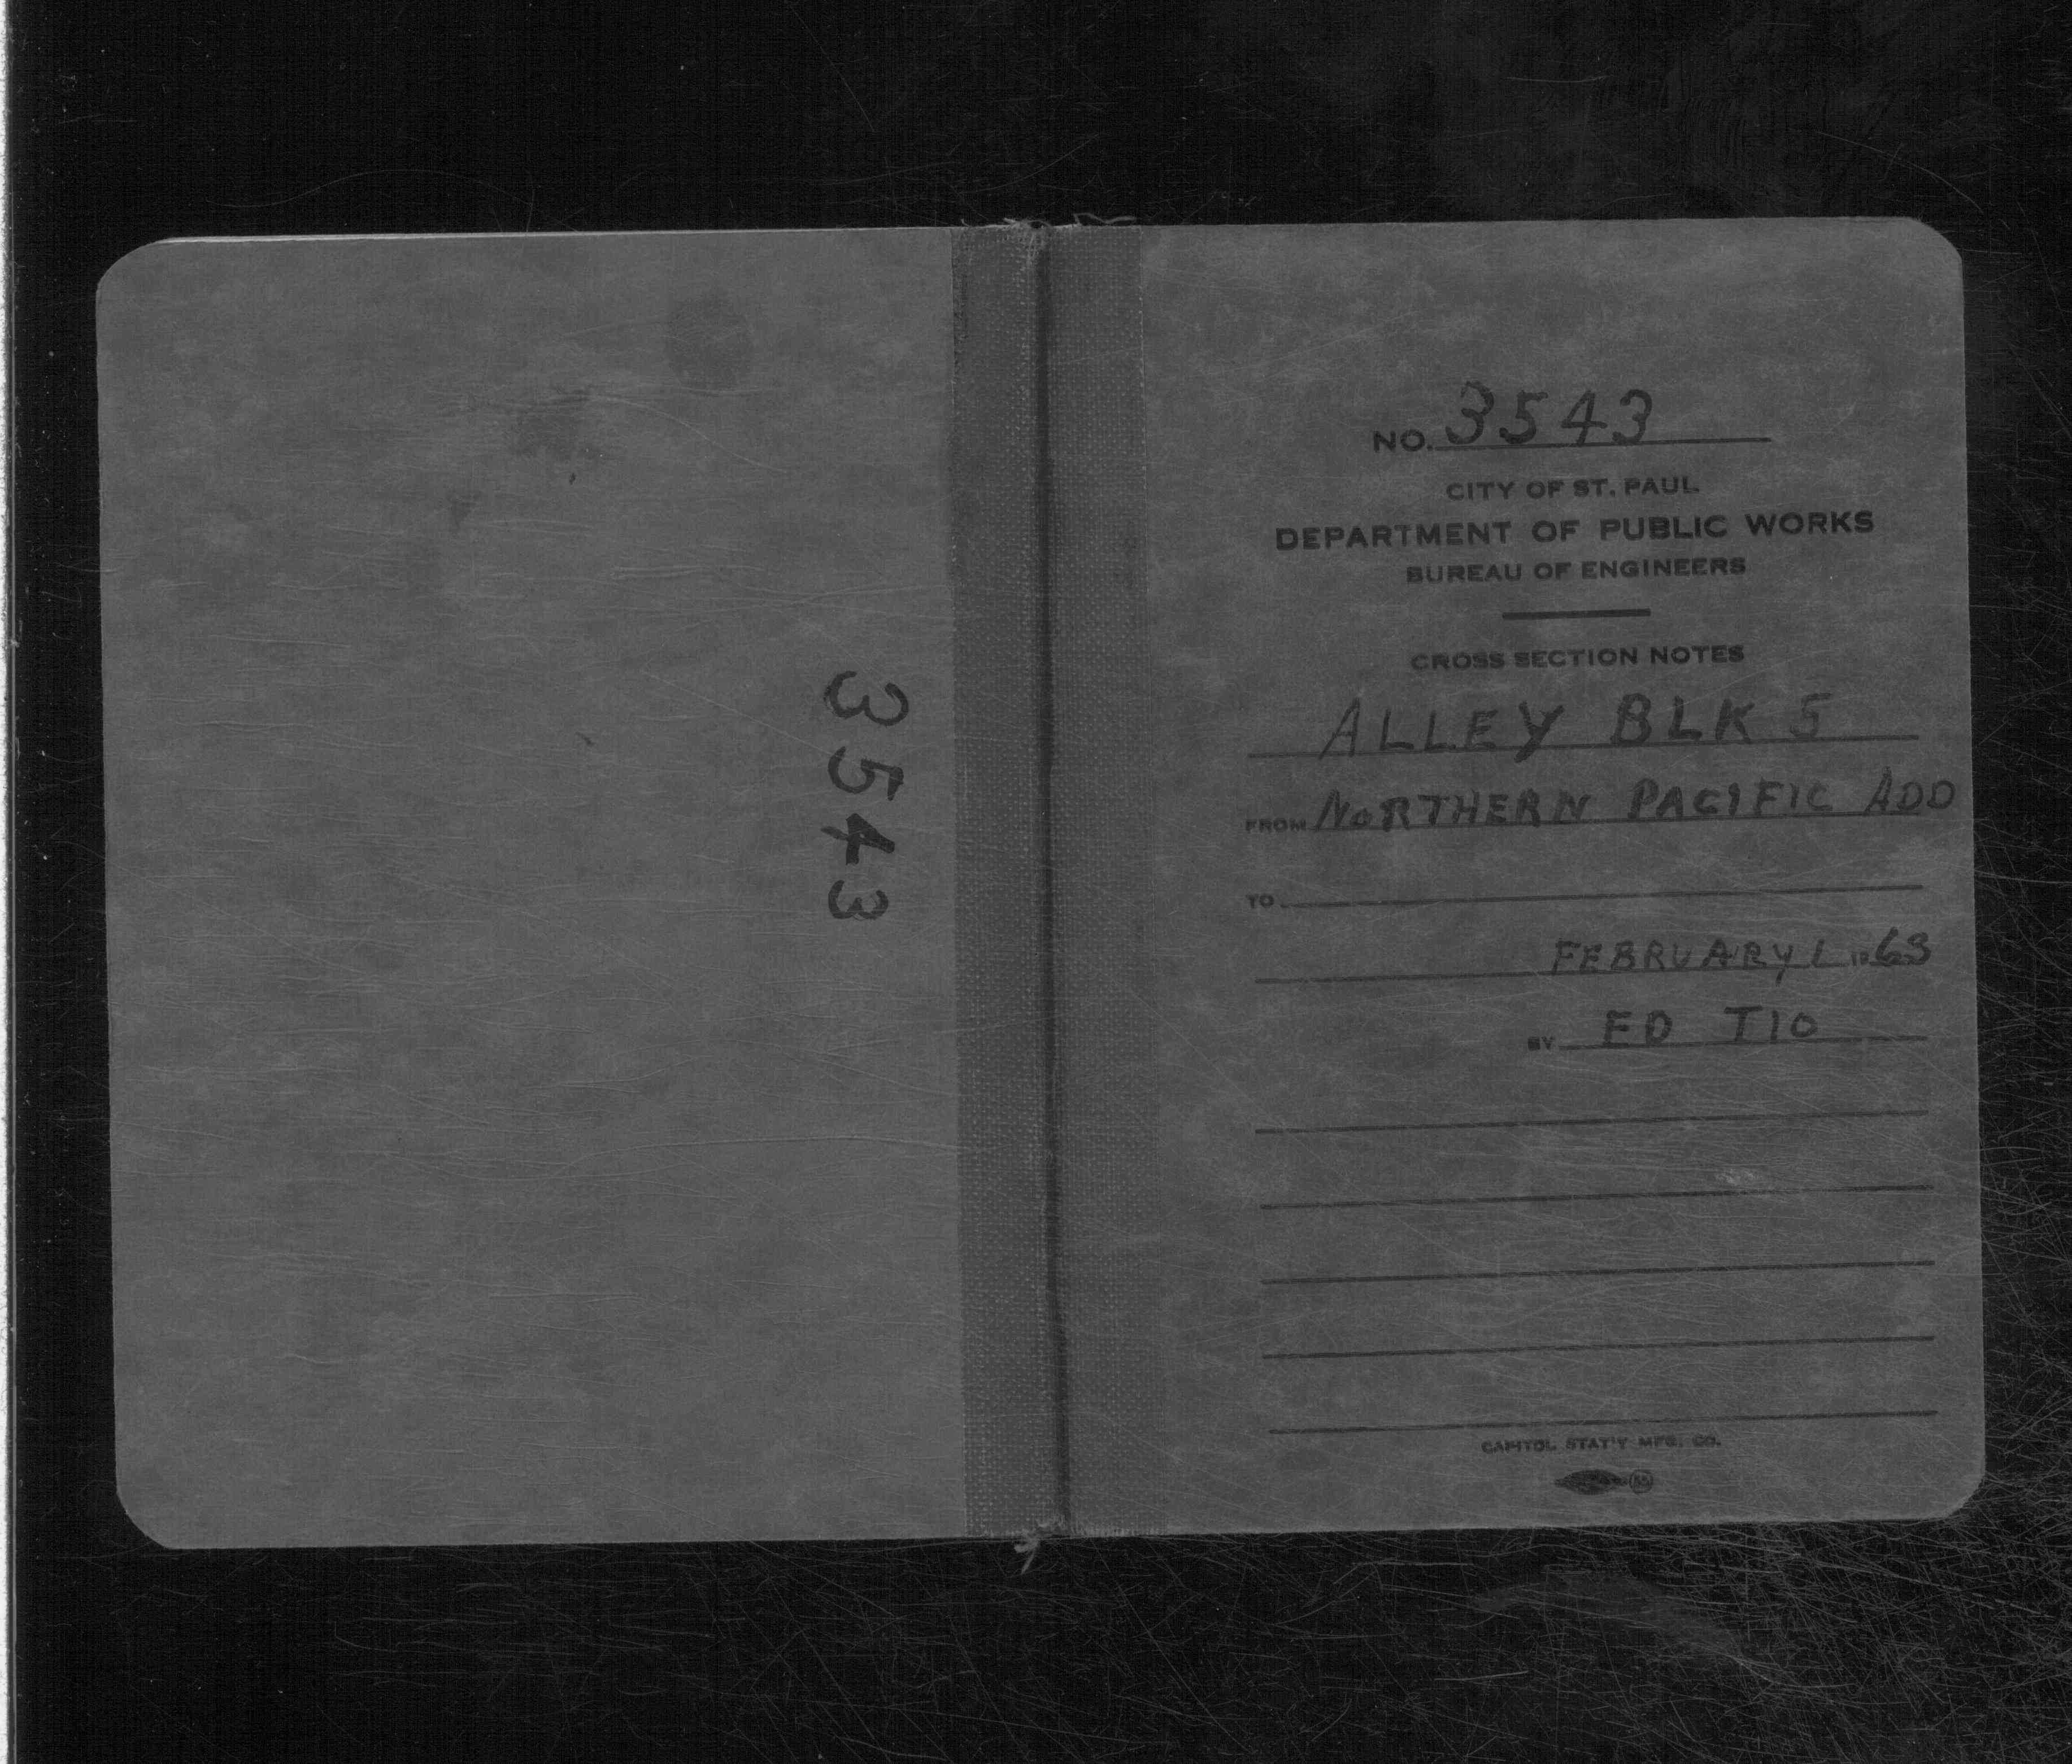 3543
NO. 3543
CITY OF ST. PAUL
DEPARTMENT OF PUBLIC WORKS
BUREAU OF ENGINEERS
CROSS SECTION NOTES
ALLEY BLK 5
FROM NORTHERN PACIFIC ADD
TO
FEBRUARY 1 1963
BY ED TIO
CAPITOL STAT'Y MFG. CO.